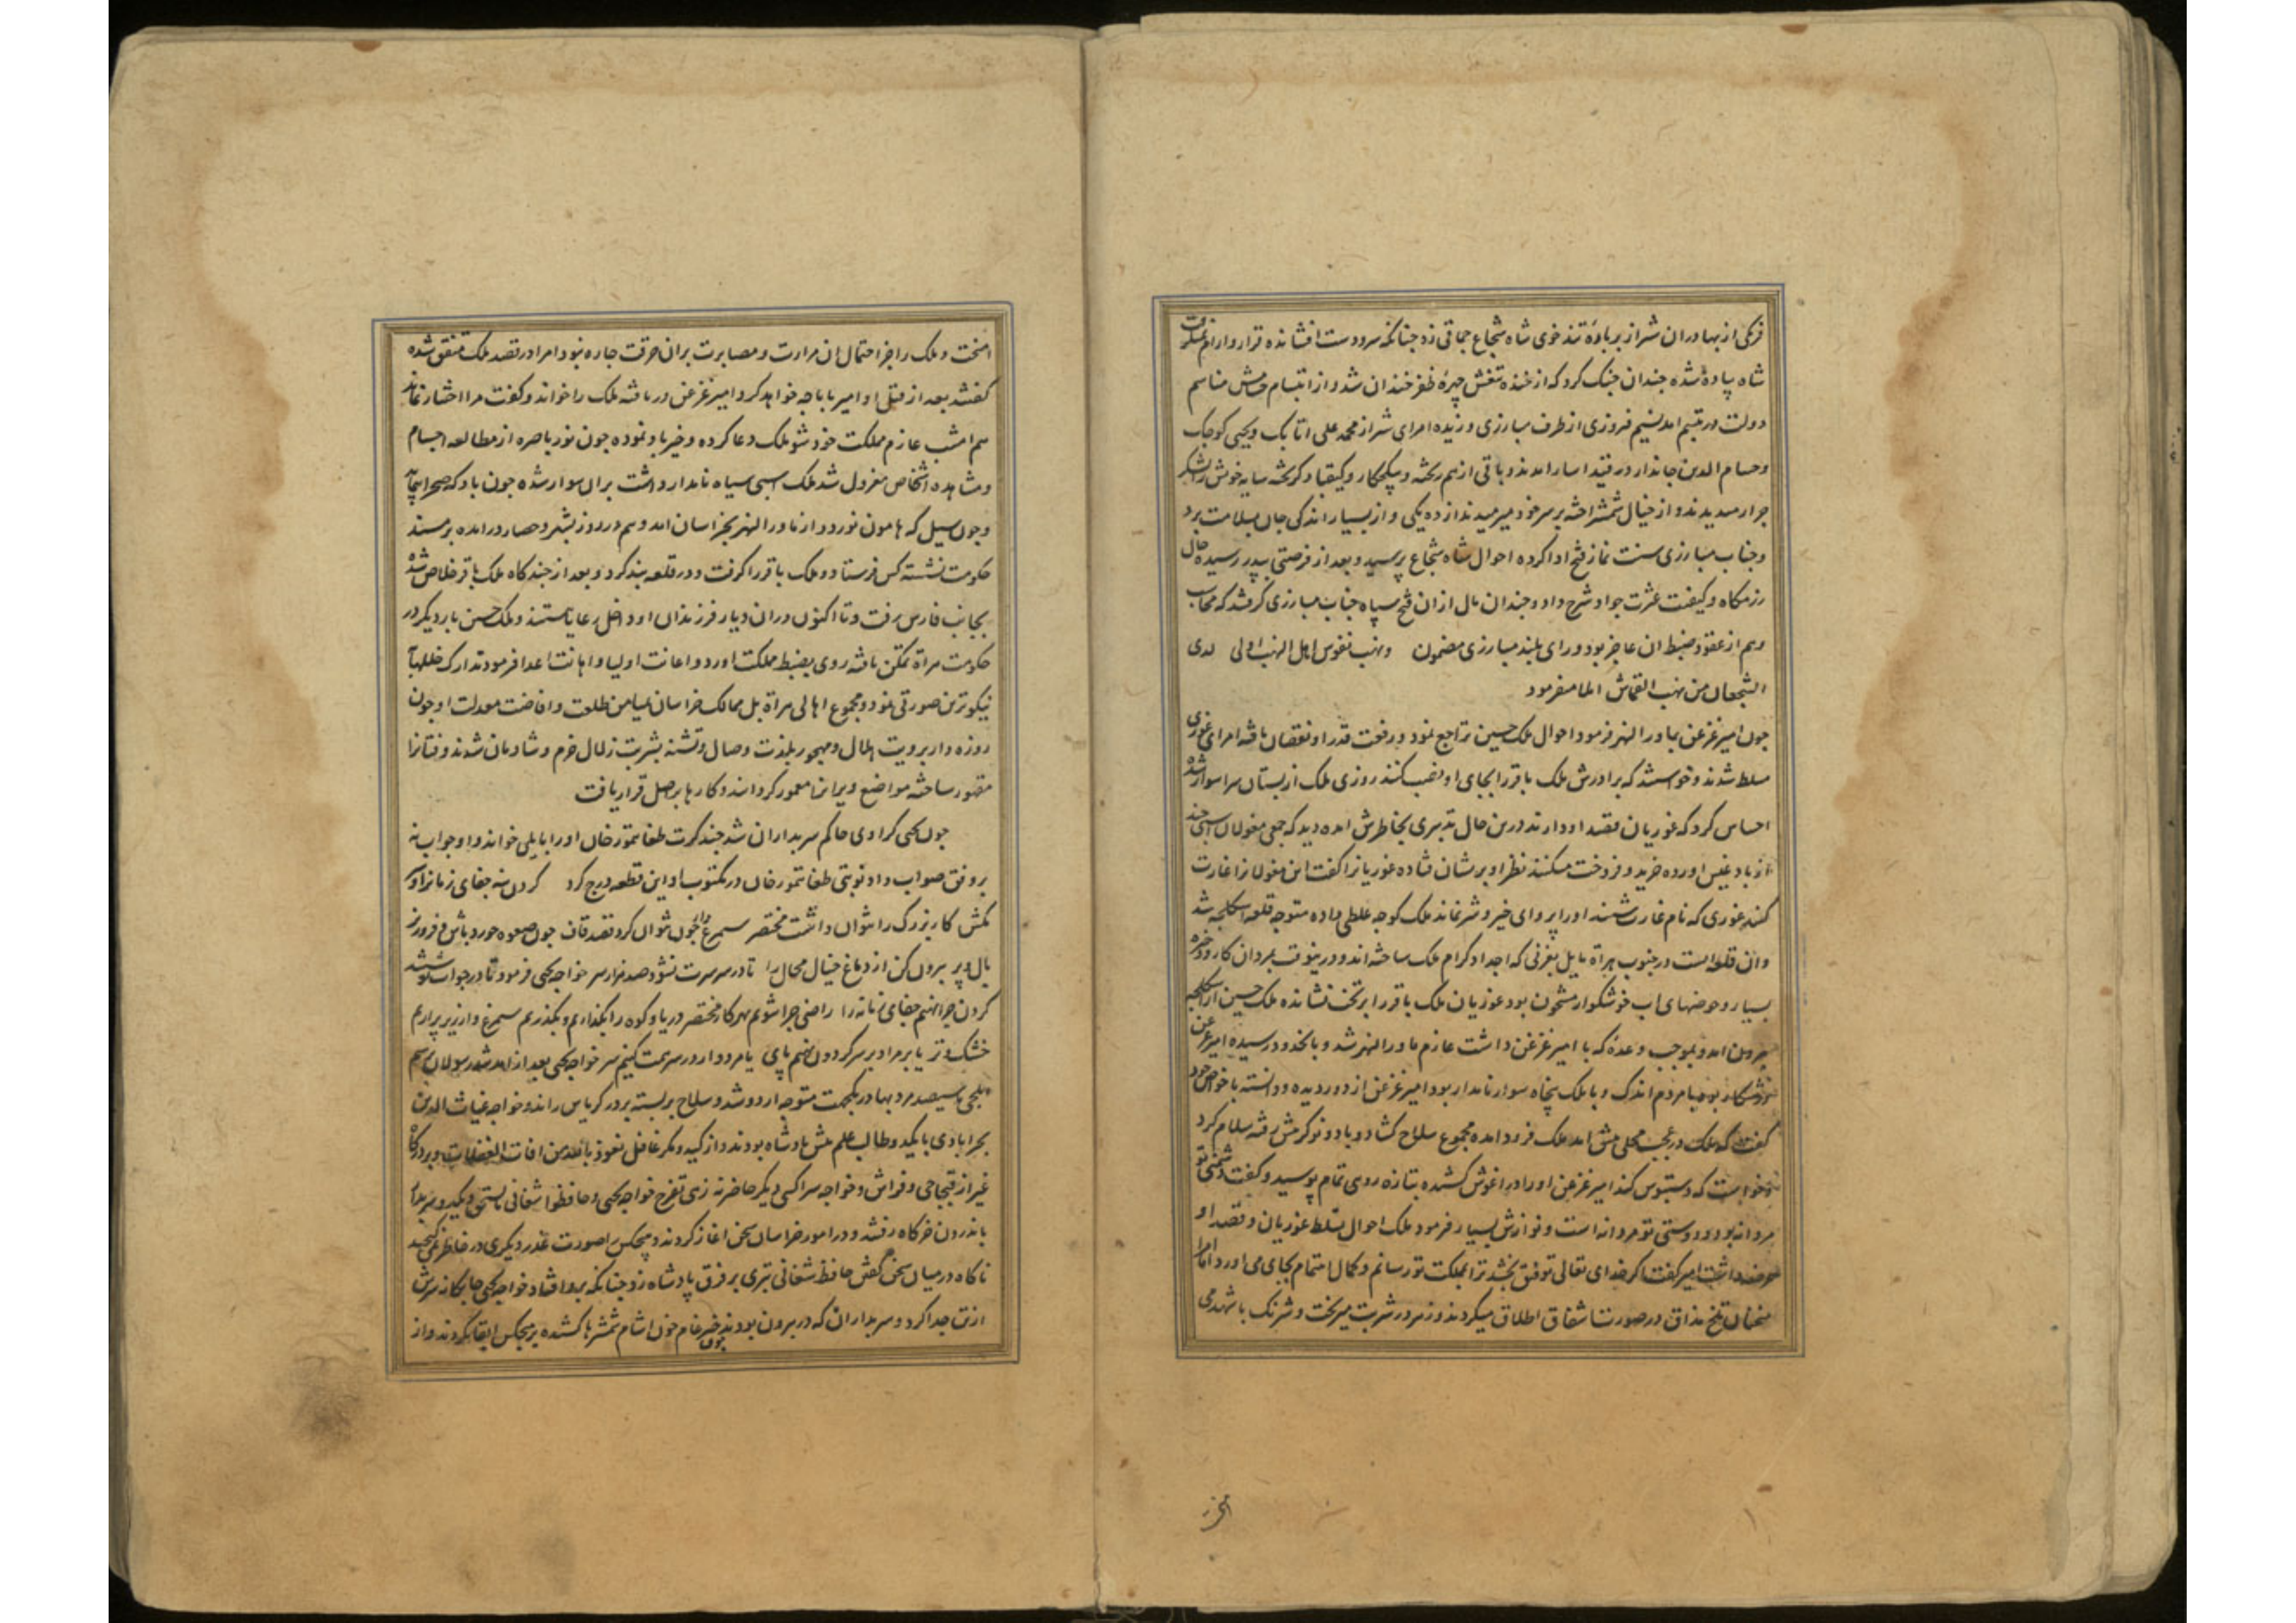 از بهادران شیراز بر باره تند خوی شاه شجاع چماقی زد چنانکه سرو دست افشانده قرار و ارام
شاه پیاده شده چندان جنک کرد که از خنده تیغش چهرهٔ ظفر خندان شد و از ابتسام
دولت در تبسم امد نسیم فیروزی از طرف مبارزی وزیده امرای شیراز محمد علی اتابک و یحیی کوجک
وحسام الدین جاندار در قید اسار امدند و باقی از هم ریخته و بیکجکار و کیقباد کریخته سایه خویش را لشکر
جرار میدیدند و از خیال شمشیر اخته بر سر خود میرمیدند از ده یکی و از بسیار اندکی جان بسلامت برد
وجناب مبارزی سنت نماز فتح ادا کرده احوال شاه شجاع پرسید و بعد از فرصتی بپدر رسیده حال
رزمکاه و کیفیت عثرت جواد شرح داد و چندان مال از ان فتح سپاه جناب مبارزی کرفتند که محاسب
وهم از عقد و ضبط ان عاجز بود و رای بلند مبارزی مضمون ونهب نفوس اهل النهب اولی لدی
الشجعان من نهب القماش املا میفرمود
چون امیر غزغن بماورالنهر فرمود احوال ملک حسین تراجع نمود و رفعت قدر او نقصان یافته امرای غوری
مسلط شدند و خواستند که برادرش ملک باقر را بجای او نصب کنند روزی ملک از بستان سرا سوار شده
احساس کرد که غوریان قصد او دارند درین حال تدبیری بخاطرش امده دید که جمعی مغولان اسبی چند
از بادغیس اورده خرید و فروخت میکنند نظر او بریشان فتاده غوریانرا کفت این مغولانرا غارت
کنند غوری که نام غارت شنید او را پروای خیر و شر نماند ملک کوچه غلطی داده متوجه قلعه اسکلجه شد
وان قلعه ایست در جنوب هراة مایل بغربی که اجداد کرام ملک ساخته اند و درینوقت بمردان کار و ذخیره
بسیار و حوضهای اب خوشکوار مشحون بود غوریان ملک باقر را بر تخت نشانده ملک حسین از اسکلجه
بیرون امد و بموجب وعده که با امیر غزغن داشت عازم ماورالنهر شد و بانحدود رسیده امیر غزغن
در شکار بود با مردم اندک و با ملک پنجاه سوار نامدار بود امیر غزغن از دور دیده و دانسته با خواص خود
کفت که ملک در عجب محلی پیش امد ملک فرود امده مجموع سلاح کشاد و با دو نوکر پیش رفته سلام کرد
وخواست که دستبوس کند امیر غزغن او را در اغوش کشیده بتازه روی تمام پرسید و کفت دشمنی تو
مردانه بود و دوستی تو مردانه است و نوازش بسیار فرمود ملک احوال تسلط غوریان و قصد او
عرضه داشت امیر کفت اکر خدای تعالی توفیق بخشد ترا بمملکت تو رسانم و کمال اهتمام بجای می اورد اما امرا
سخنان تلخ مذاق در صورت اشفاق اطلاق میکردند و زهر در شربت میریخت و شرنک با شهد می
امیخت و ملک را جز احتمال ان مرارت و مصابرت بران حرقت چاره نبود امرا در قصد ملک متفق شده
کفتند بعد از قتل او امیر با ما چه خواهد کرد امیر غزغن دریافته ملک را خواند و کفت مرا اختیار نماند
هم امشب عازم مملکت خود شو ملک دعا کرده و خیر باد نموده چون نور باصره از مطالعه اجسام
ومشاهده اشخاص معزول شد ملک اسبی سیاه نامدار داشت بران سوار شده چون باد که صحرا پیماید
وچون سیل که هامون نوردد از ماورالنهر بخراسان امد و هم در روز بشهر و حصار درامده بر مسند
حکومت نشسته کس فرستاد و ملک باقر را کرفت و در قلعه بند کرد و بعد از چندکاه ملک باقر خلاص شده
بجانب فارس رفت و تا اکنون دران دیار فرزندان او داخل رعایا هستند و ملک حسین بار دیکر در
حکومت هراة تمکن یافته روی بضبط مملکت اورد و اعانت اولیا و اهانت اعدا فرمود تدارک خللها
نیکوترین صورتی نمود و مجموع اهالی هراة بل ممالک خراسان بمیامن طلعت و افاضت معدلت او چون
روزه دار برویت هلال و مهجور بلذت وصال و تشنه بشربت زلال خرم و شادمان شدند و فتانرا
مقهور ساخته مواضع ویرانرا معمور کردانید و کارها بر اصل قرار یافت
چون یحیی کراوی حاکم سربداران شد چند کرت طغا تیمور خان او را بایلی خواند و او جواب نه
بر وفق صواب داد نوبتی طغا تیمور خان در مکتوب او این قطعه درج کرد کردن بنه جفای زمانرا و سر
مکش کار بزرک را نتوان داشت مختصر سیمرغ وار چون نتوان کرد قصد قاف چون صعوه خورد باش و فروریز
بال و پر بیرون کن از دماغ خیال محال را تا در سر سرت نشود صد هزار سر خواجه یحیی فرمود تا در جواب نوشتند
کردن چرا نهیم جفای زمانه را راضی چرا شویم بهر کار مختصر دریا و کوه را بکذاریم و بکذریم سیمرغ وار زیر پر اریم
خشک و تر یا بر مراد بر سر کردون نهیم پای یا مردوار در سر همت کنیم سر خواجه یحیی بعد از امد شد رسولان برسم
یلجی با سیصد مرد بهادر یکجهت متوجه اردو شد و سلاح بر بسته بر در کریاس راند و خواجه غیاث الدین
بحرابادی بایکید و طالب علم پیش پادشاه بودند و از کید و مکر غافل نعوذ بالله من افات الغفلات و بر درکاه
غیر از قبچاجی و فراش و خواجه سرا کسی دیکر حاضر نه زی تفرج خواجه یحیی و حافظ شغانی با سخی دیکر و سربدار
باندرون خرکاه رفتند و در امور خراسان سخن اغاز کردند و هیچکس را صورت غدر دیکری در خاطر نمی کنجید
ناکاه در میان سخن کفتن حافظ شغانی تبری بر فرق پادشاه زد چنانکه برو افتاد و خواجه یحیی چابکانه سرش
از تن جدا کرد و سربداران که در بیرون بودند چون خبر خام خون اشام شمشیرها کشیده بر هیچکس ابقا نکردند و از